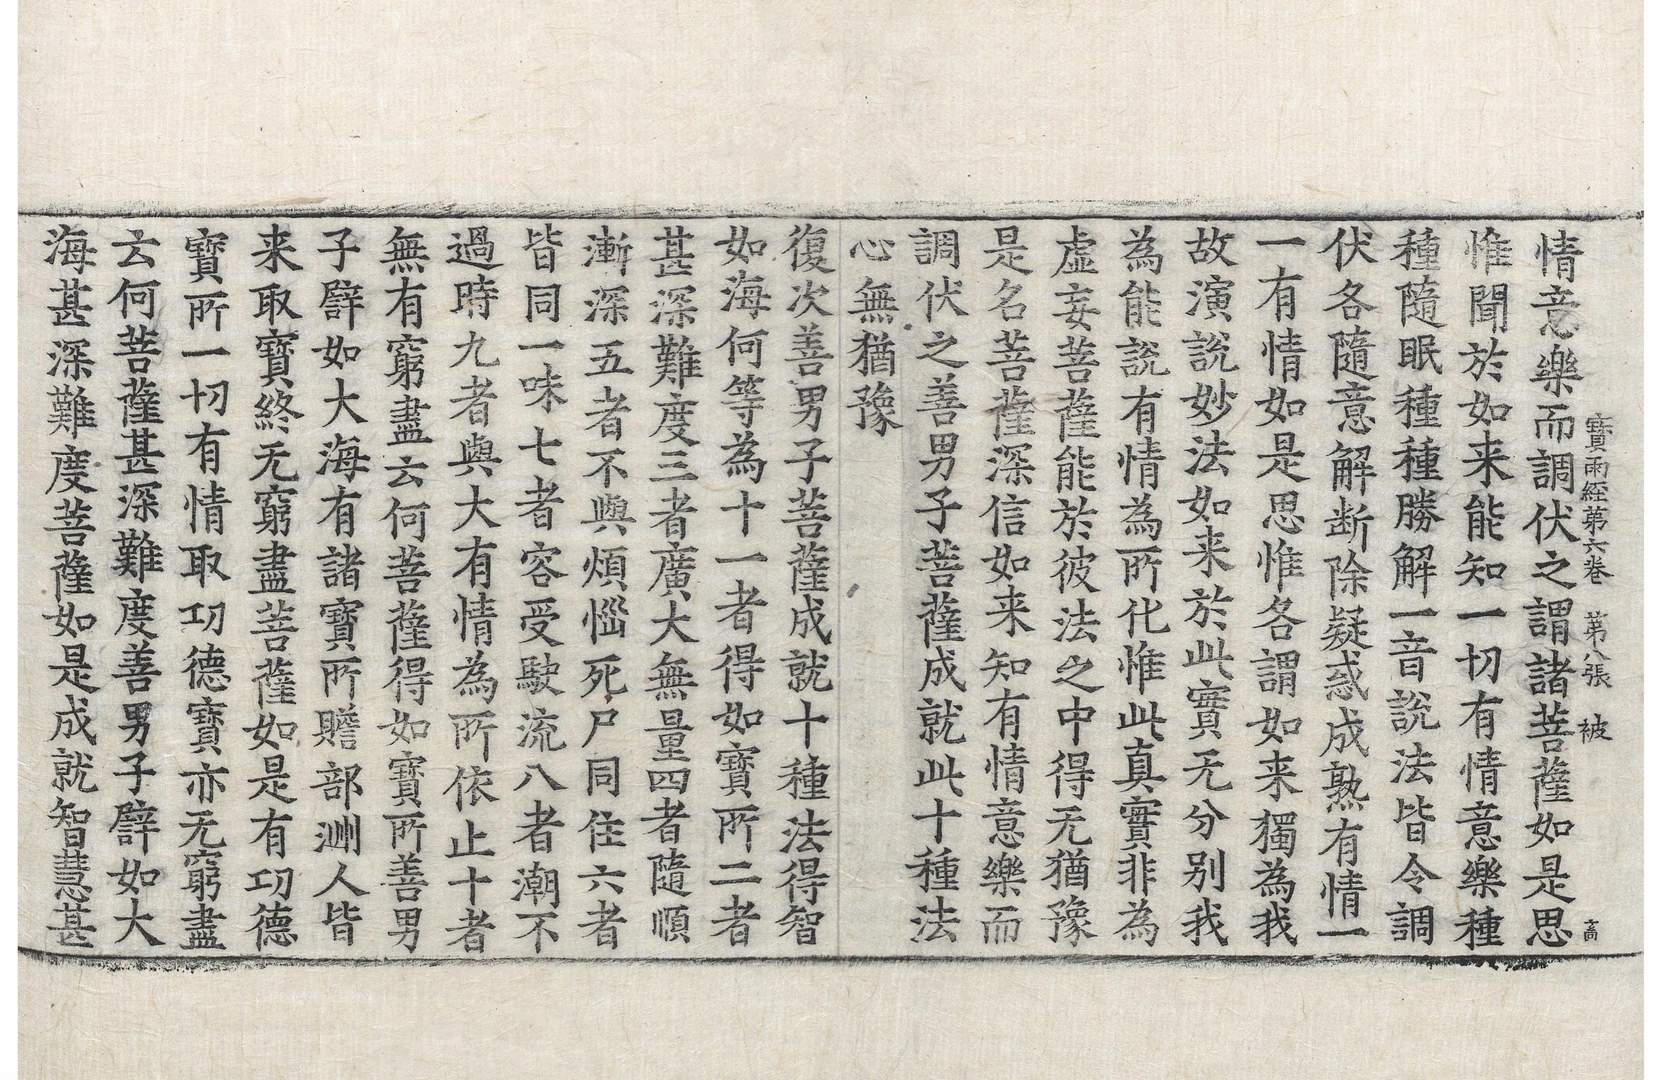 寶雨經第六卷 第八張 被
情意樂而調伏之謂諸菩薩如是思
惟聞於如来能知一切有情意樂種
種隨眠種種勝解一音說法皆令調
伏各隨意解断除疑惑成熟有情一
一有情如是思惟各謂如来獨為我
故演說妙法如来於此實无分别我
為能說有情為所化惟此真實非為
虛妄菩薩能於彼法之中得无猶豫
是名菩薩深信如来知有情意樂而
調伏之善男子菩薩成就此十種法
心無猶豫
復次善男子菩薩成就十種法得智
如海何等為十一者得如寶所二者
甚深難度三者廣大無量四者隨順
漸深五者不與煩惱死尸同住六者
皆同一味七者容受駛流八者潮不
過時九者與大有情為所依止十者
無有窮盡云何菩薩得如寶所善男
子譬如大海有諸寶所贍部洲人皆
来取寶終无窮盡菩薩如是有功德
寶所一切有情取功德寶亦无窮盡
云何菩薩甚深難度善男子譬如大
海甚深難度菩薩如是成就智慧甚